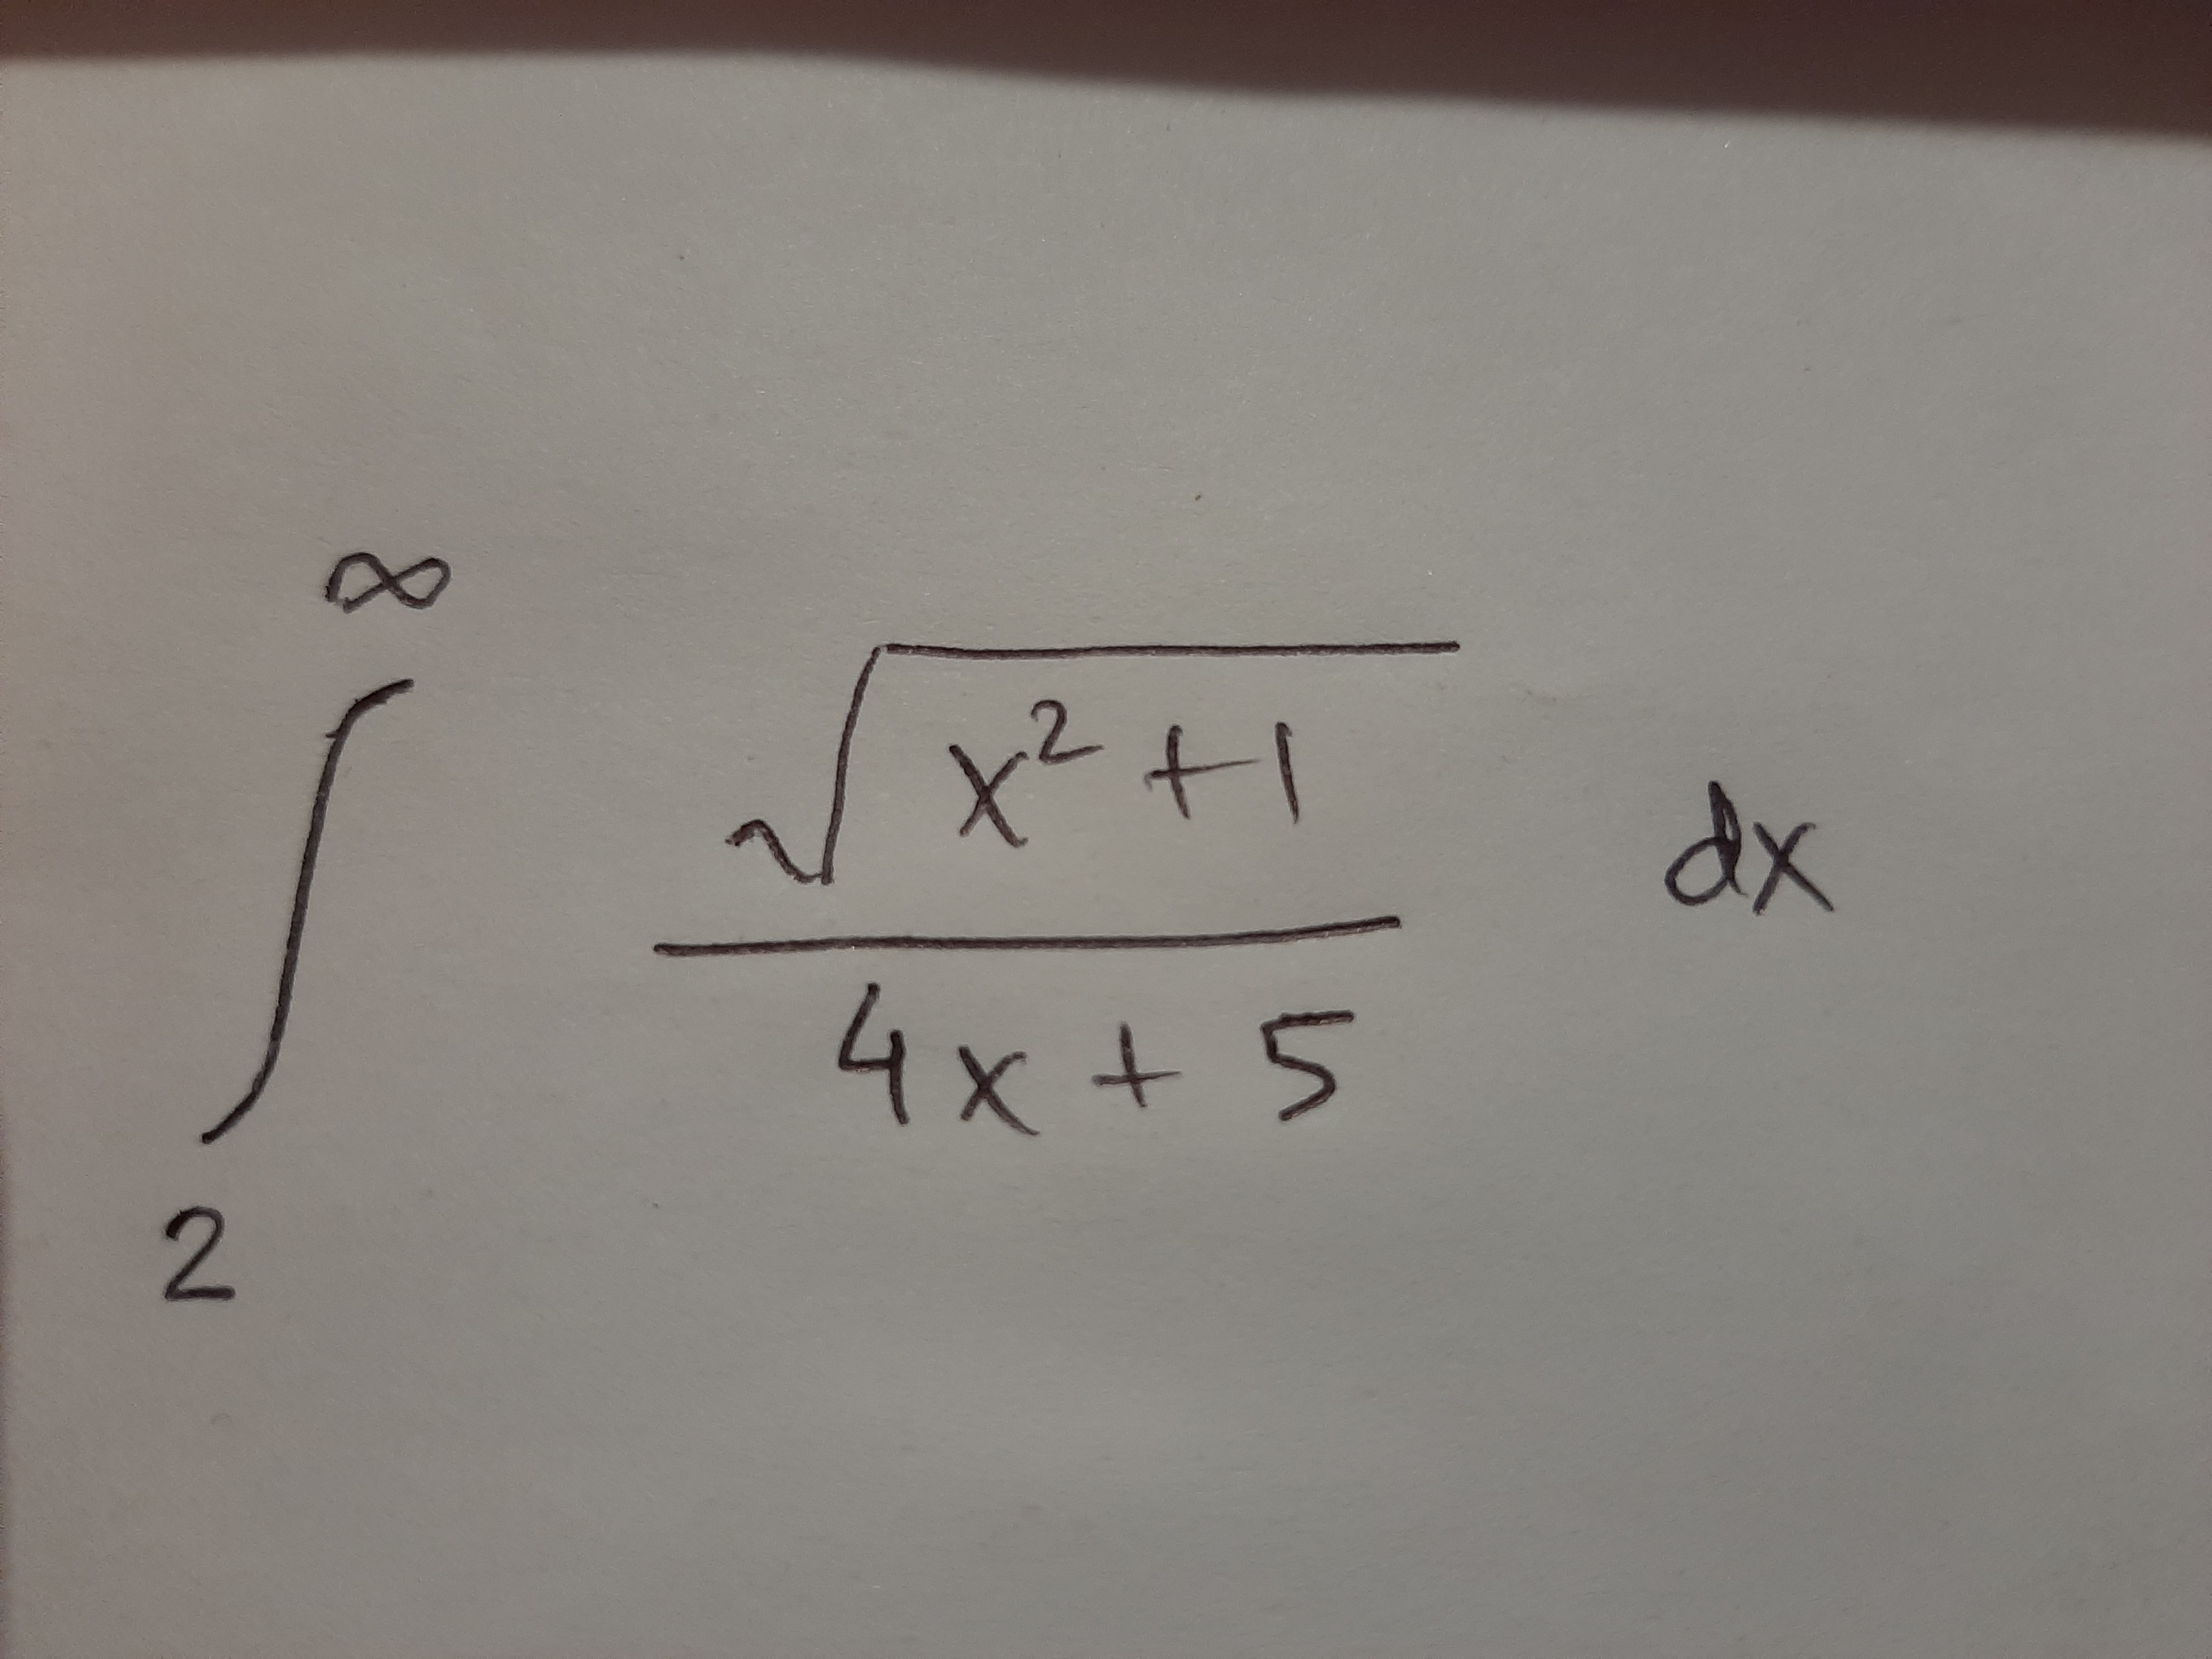 ∫₂^∞ √(x² + 1) / (4x + 5) dx